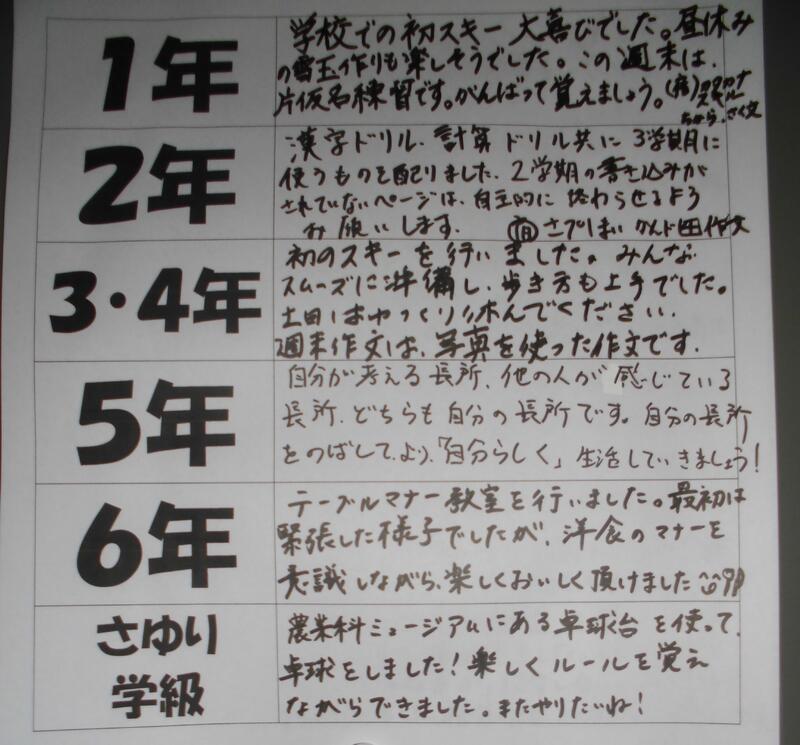 1年
学校での初スキー大喜びでした。昼休み
の雪玉作りも楽しそうでした。この週末は、
片仮名練習です。がんばって覚えましょう。
2年
漢字ドリル、計算ドリル共に3学期に
使うものを配りました。2学期の書き込みが
されていないページは、自主的に終わらせるよう
お願いします。
3・4年
初のスキーを行いました。みんな
スムーズに準備し、歩き方も上手でした。
土日はゆっくり休んでください。
週末作文は、写真を使った作文です。
5年
自分が考える長所、他の人が感じている
長所、どちらも自分の長所です。自分の長所
をのばして、より、「自分らしく」生活していきましょう!
6年
テーブルマナー教室を行いました。最初は
緊張した様子でしたが、洋食のマナーを
意識しながら、楽しくおいしく頂けました
さゆり
学級
農業科ミュージアムにある卓球台を使って、
卓球をしました!楽しくルールを覚え
ながらできました。またやりたいね!